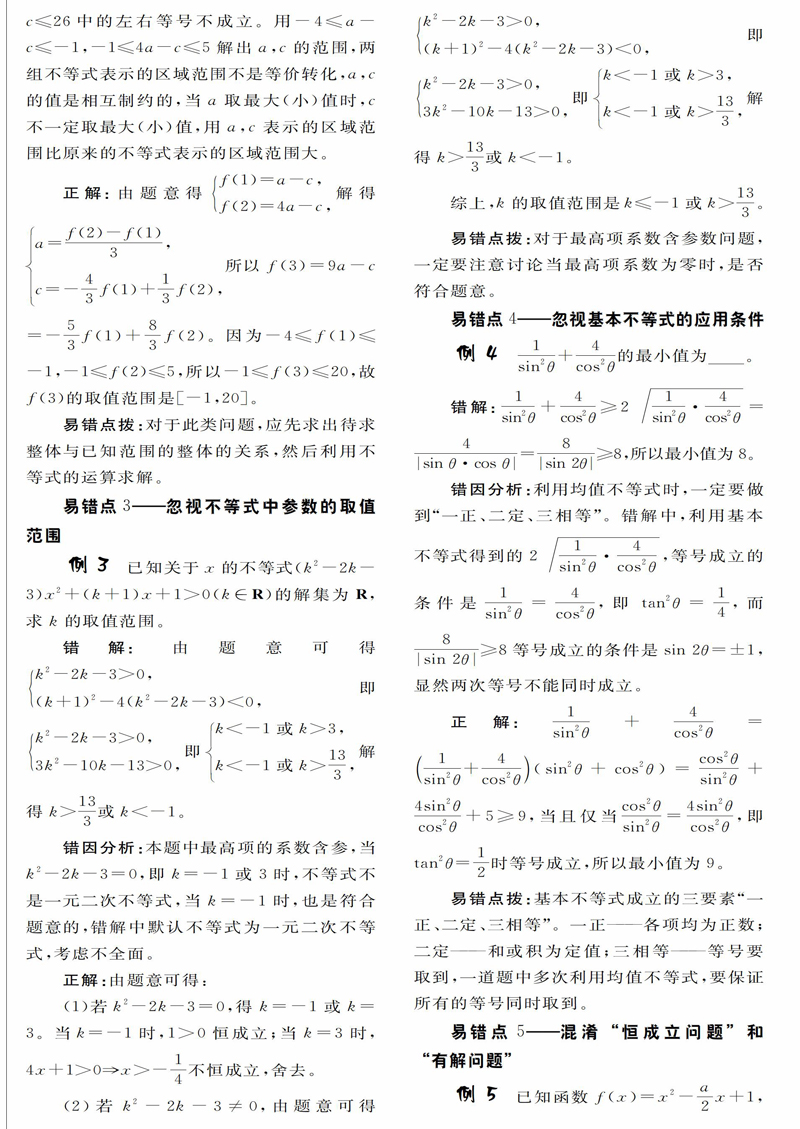 c≤26 中的左右等号不成立。用－4≤a－
c≤－1,－1≤4a－c≤5 解出 a,c 的范围,两
组不等式表示的区域范围不是等价转化,a,c
的值是相互制约的,当 a 取最大(小)值时,c
不一定取最大(小)值,用 a,c 表示的区域范
围比原来的不等式表示的区域范围大。
正解:由题意得 {f(1)=a－c, f(2)=4a－c, 解得
{a=(f(2)－f(1))/3, c=－4/3 f(1)+1/3 f(2), 所以 f(3)=9a－c
=－5/3 f(1)+8/3 f(2)。因为－4≤f(1)≤
－1,－1≤f(2)≤5,所以－1≤f(3)≤20,故
f(3)的取值范围是[－1,20]。
易错点拨:对于此类问题,应先求出待求
整体与已知范围的整体的关系,然后利用不
等式的运算求解。
易错点 3——忽视不等式中参数的取值
范围
例 3 已知关于 x 的不等式(k²－2k－
3)x²+(k+1)x+1>0(k∈R)的解集为 R,
求 k 的取值范围。
错解:由题意可得
{k²－2k－3>0, (k+1)²－4(k²－2k－3)<0, 即
{k²－2k－3>0, 3k²－10k－13>0, 即 {k<－1 或 k>3, k<－1 或 k>13/3, 解
得 k>13/3 或 k<－1。
错因分析:本题中最高项的系数含参,当
k²－2k－3=0,即 k=－1 或 3 时,不等式不
是一元二次不等式,当 k=－1 时,也是符合
题意的,错解中默认不等式为一元二次不等
式,考虑不全面。
正解:由题意可得:
(1)若 k²－2k－3=0,得 k=－1 或 k=
3。当 k=－1 时,1>0 恒成立;当 k=3 时,
4x+1>0⇒x>－1/4 不恒成立,舍去。
(2)若 k²－2k－3≠0,由题意可得
{k²－2k－3>0, (k+1)²－4(k²－2k－3)<0, 即
{k²－2k－3>0, 3k²－10k－13>0, 即 {k<－1 或 k>3, k<－1 或 k>13/3, 解
得 k>13/3 或 k<－1。
综上,k 的取值范围是 k≤－1 或 k>13/3。
易错点拨:对于最高项系数含参数问题,
一定要注意讨论当最高项系数为零时,是否
符合题意。
易错点 4——忽视基本不等式的应用条件
例 4 1/sin²θ+4/cos²θ 的最小值为____。
错解:1/sin²θ+4/cos²θ≥2√(1/sin²θ·4/cos²θ)=
4/|sin θ·cos θ|=8/|sin 2θ|≥8,所以最小值为 8。
错因分析:利用均值不等式时,一定要做
到“一正、二定、三相等”。错解中,利用基本
不等式得到的 2√(1/sin²θ·4/cos²θ),等号成立的
条件是 1/sin²θ=4/cos²θ,即 tan²θ=1/4,而
8/|sin 2θ|≥8 等号成立的条件是 sin 2θ=±1,
显然两次等号不能同时成立。
正解:1/sin²θ+4/cos²θ=
(1/sin²θ+4/cos²θ)(sin²θ+cos²θ)=cos²θ/sin²θ+
4sin²θ/cos²θ+5≥9,当且仅当 cos²θ/sin²θ=4sin²θ/cos²θ,即
tan²θ=1/2 时等号成立,所以最小值为 9。
易错点拨:基本不等式成立的三要素“一
正、二定、三相等”。一正——各项均为正数;
二定——和或积为定值;三相等——等号要
取到,一道题中多次利用均值不等式,要保证
所有的等号同时取到。
易错点 5——混淆“恒成立问题”和
“有解问题”
例 5 已知函数 f(x)=x²－a/2 x+1,